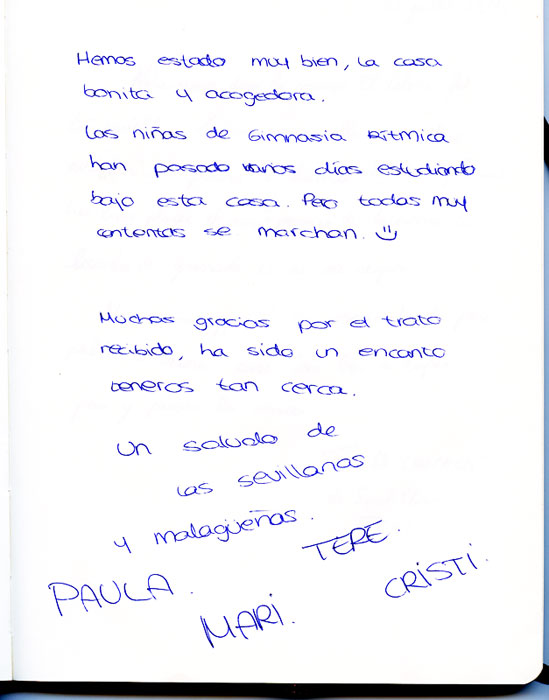 Hemos estado muy bien, la casa
bonita y acogedora.
Las niñas de Gimnasia Rítmica
han pasado varios días estudiando
bajo esta casa. Pero todas muy
contentas se marchan.
Muchas gracias por el trato
recibido, ha sido un encanto
teneros tan cerca.
Un saludo de
las sevillanas
y malagüeñas.
TERE.
PAULA.
CRISTI.
MARI.